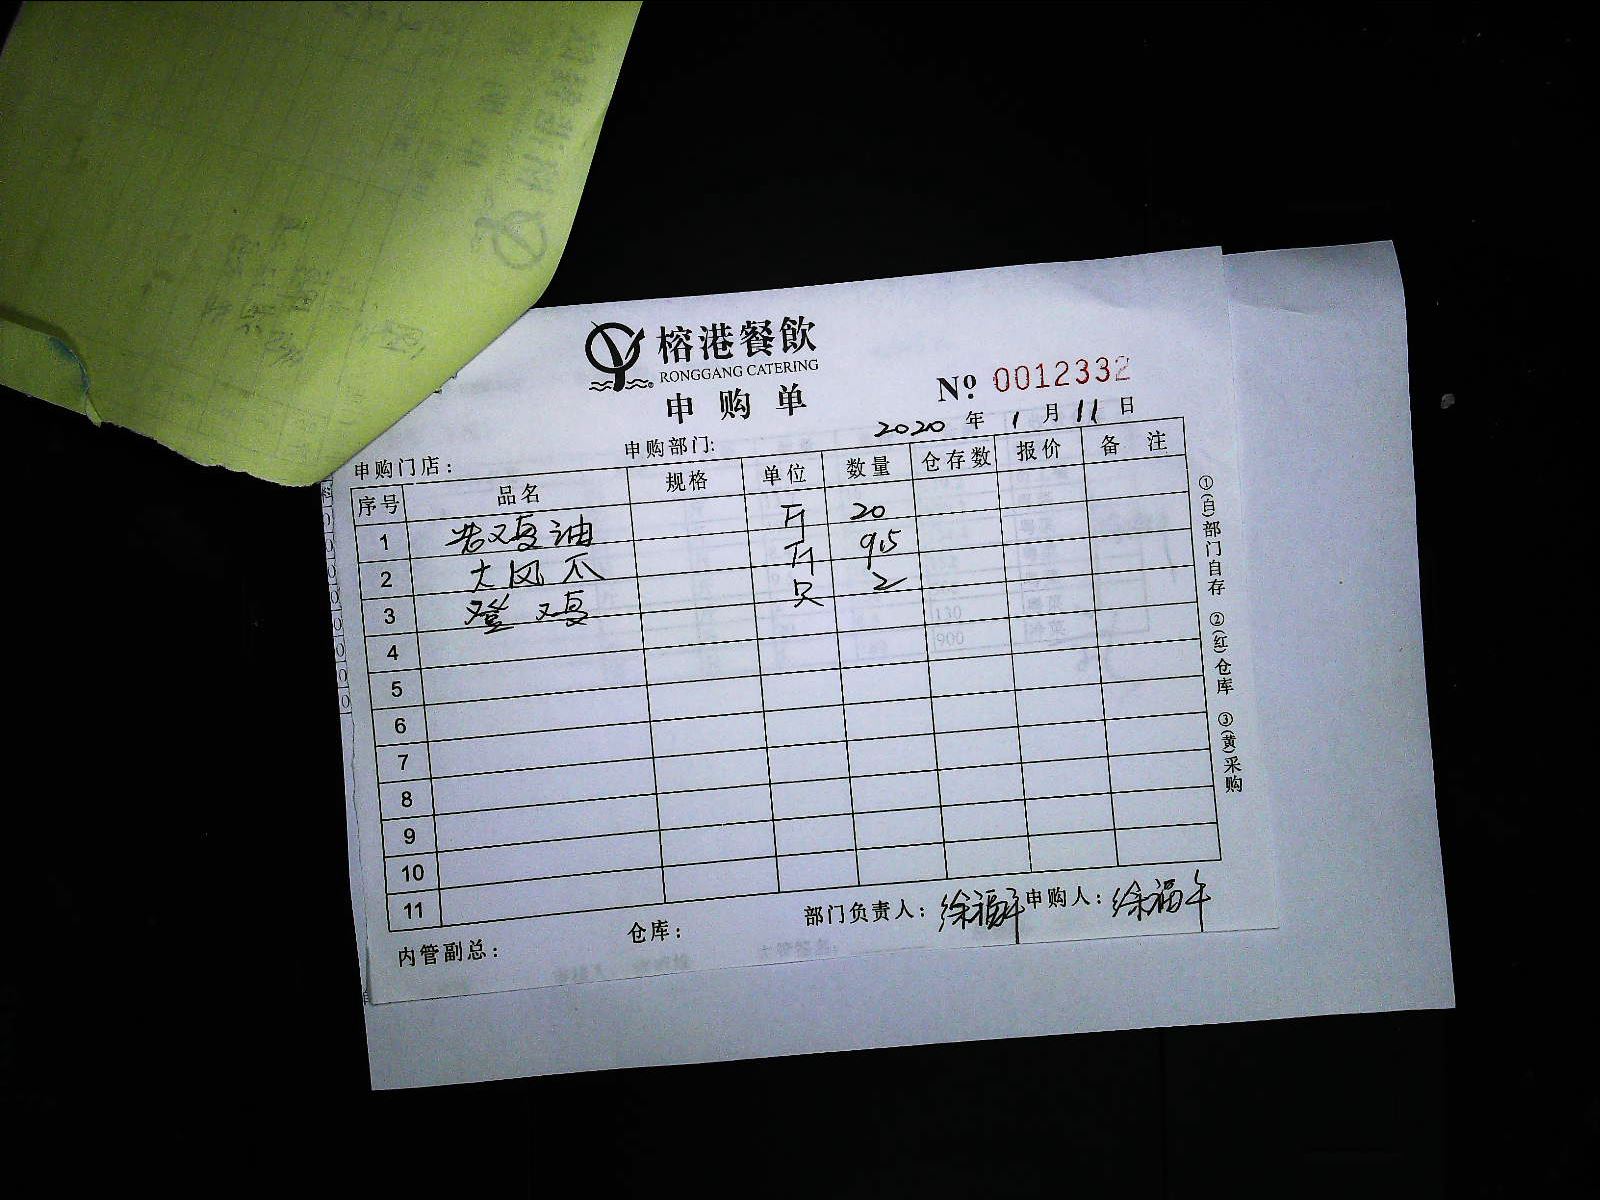 榕港餐飲
RONGGANG CATERING
申购单
№ 0012332
2020 年 1 月 11 日
申购门店： 申购部门:
序号 品名 规格 单位 数量 仓存数 报价 备注
1 老鸡油 斤 20
2 大凤爪 斤 9.5
3 鸡 只 2
4
5
6
7
8
9
10
11
内管副总： 仓库： 部门负责人：徐福平 申购人：徐福平
①(白)部门自存 ②(红)仓库 ③(黄)采购
130
900